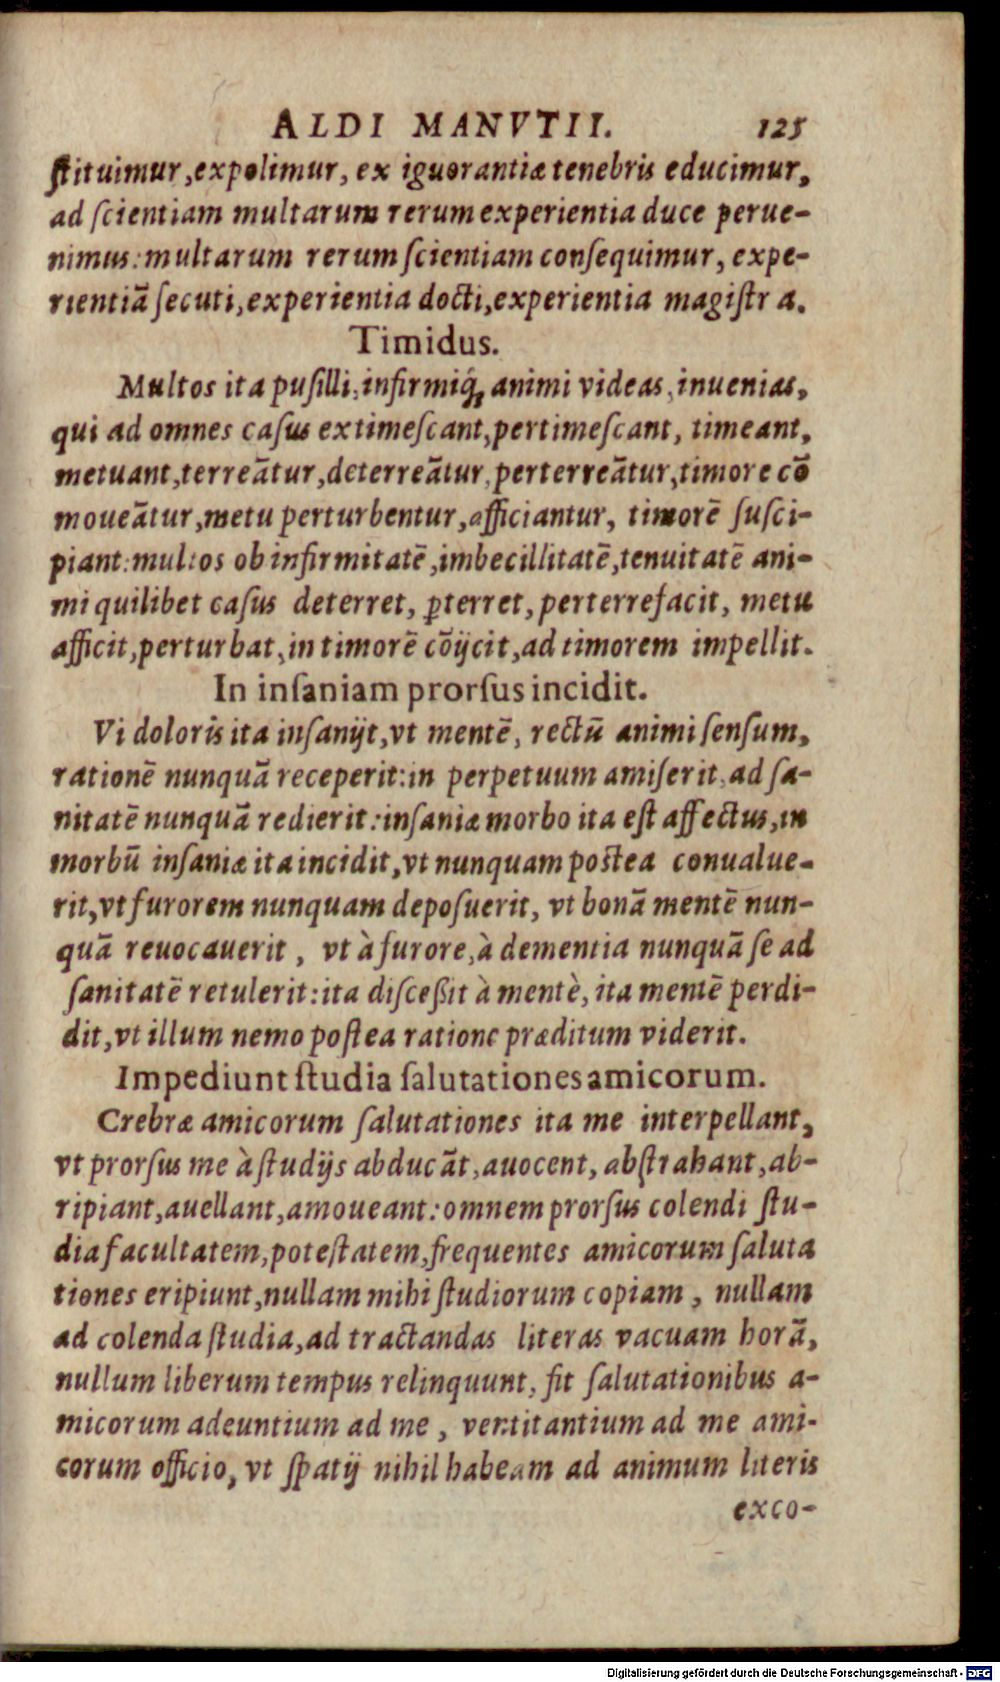 ALDI MANVTII. 125
ſtituimur, expolimur, ex iguorantiæ tenebris educimur,
ad ſcientiam multarum rerum experientia duce perue-
nimus: multarum rerum ſcientiam conſequimur, expe-
rientiã ſecuti, experientia docti, experientia magiſtra.
Timidus.
Multos ita puſilli, infirmiq́; animi videas, inuenias,
qui ad omnes caſus extimeſcant, pertimeſcant, timeant,
metuant, terreãtur, deterreãtur, perterreãtur, timore cõ
moueãtur, metu perturbentur, afficiantur, timorẽ ſuſci-
piant: multos ob infirmitatẽ, imbecillitatẽ, tenuitatẽ ani-
mi quilibet caſus deterret, ꝑterret, perterrefacit, metu
afficit, perturbat, in timorẽ cõijcit, ad timorem impellit.
In inſaniam prorſus incidit.
Vi doloris ita inſanijt, vt mentẽ, rectũ animi ſenſum,
rationẽ nunquã receperit: in perpetuum amiſerit, ad ſa-
nitatẽ nunquã redierit: inſaniæ morbo ita eſt affectus, in
morbũ inſaniæ ita incidit, vt nunquam poſtea conualue-
rit, vt furorem nunquam depoſuerit, vt bonã mentẽ nun-
quã reuocauerit, vt à furore, à dementia nunquã ſe ad
ſanitatẽ retulerit: ita diſceßit à mentè, ita mentẽ perdi-
dit, vt illum nemo poſtea ratione præditum viderit.
Impediunt ſtudia ſalutationes amicorum.
Crebræ amicorum ſalutationes ita me interpellant,
vt prorſus me à ſtudijs abducãt, auocent, abſtrahant, ab-
ripiant, auellant, amoueant: omnem prorſus colendi ſtu-
dia facultatem, poteſtatem, frequentes amicorum ſaluta
tiones eripiunt, nullam mihi ſtudiorum copiam, nullam
ad colenda ſtudia, ad tractandas literas vacuam horã,
nullum liberum tempus relinquunt, fit ſalutationibus a-
micorum adeuntium ad me, ventitantium ad me ami-
corum officio, vt ſpatij nihil habeam ad animum literis
exco-
Digitalisierung gefördert durch die Deutsche Forschungsgemeinschaft - DFG